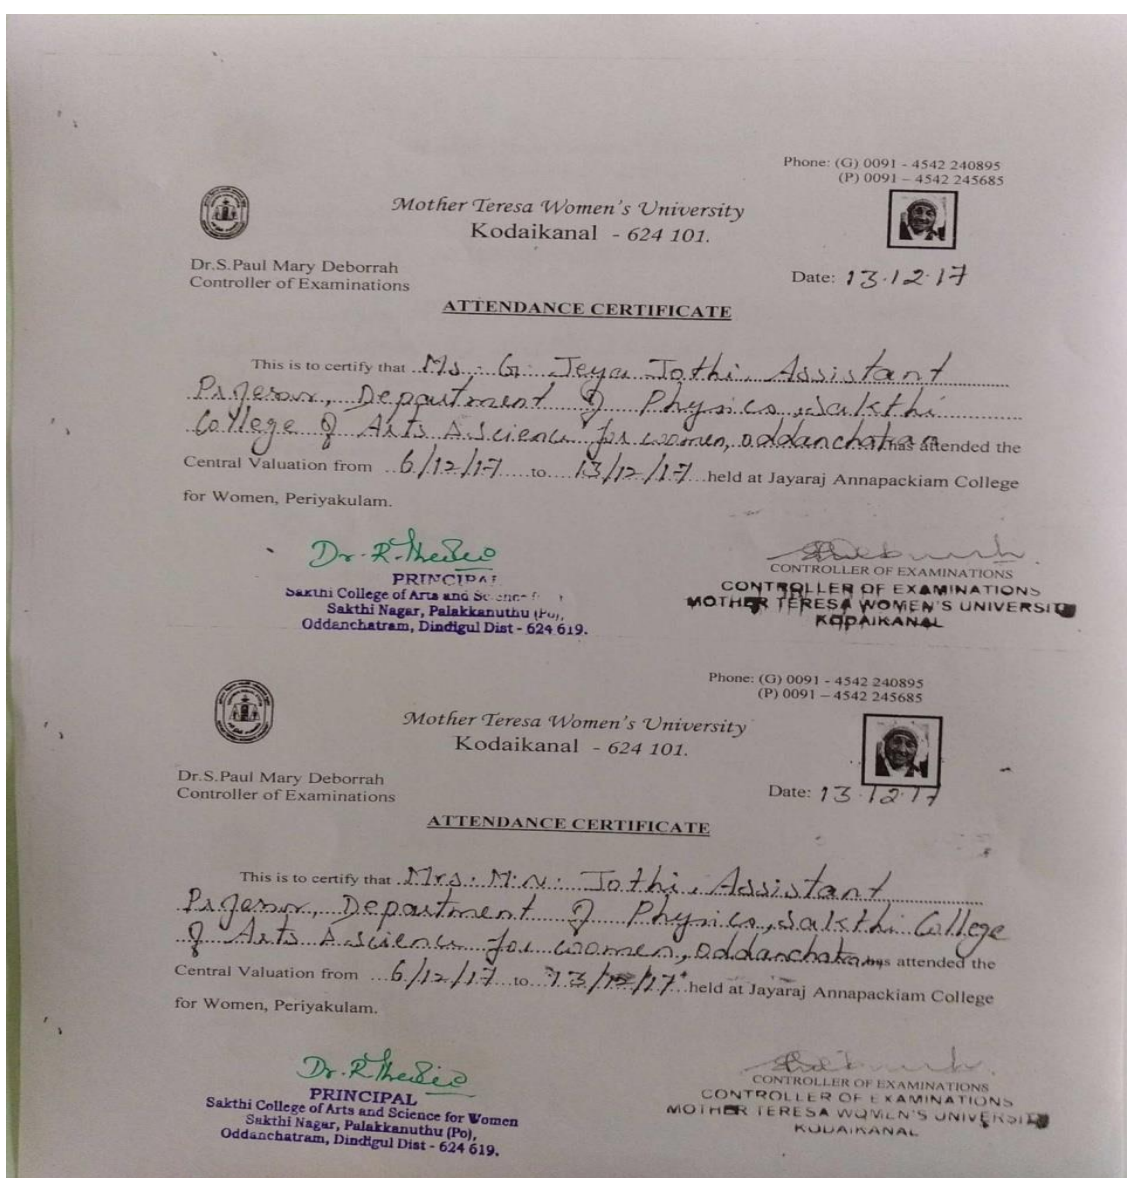 Phone: (G) 0091 - 4542 240895
(P) 0091 – 4542 245685
Mother Teresa Women's University
Kodaikanal - 624 101.
Dr.S.Paul Mary Deborrah
Controller of Examinations
Date: 13.12.17
ATTENDANCE CERTIFICATE
This is to certify that Ms. G. Jeya Jothi, Assistant
Professor, Department of Physics, Sakthi
College of Arts & Science for women, oddanchatram has attended the
Central Valuation from 6/12/17 to 13/12/17 held at Jayaraj Annapackiam College
for Women, Periyakulam.
Dr. R.
PRINCIPAL
Sakthi College of Arts and Science
Sakthi Nagar, Palakkanuthu (Po),
Oddanchatram, Dindigul Dist - 624 619.
CONTROLLER OF EXAMINATIONS
CONTROLLER OF EXAMINATIONS
MOTHER TERESA WOMEN'S UNIVERSITY
KODAIKANAL
Phone: (G) 0091 - 4542 240895
(P) 0091 – 4542 245685
Mother Teresa Women's University
Kodaikanal - 624 101.
Dr.S.Paul Mary Deborrah
Controller of Examinations
Date: 13.12.17
ATTENDANCE CERTIFICATE
This is to certify that Mrs. M.N. Jothi, Assistant
Professor, Department of Physics, Sakthi College
of Arts & Science for women, oddanchatram has attended the
Central Valuation from 6/12/17 to 13/12/17 held at Jayaraj Annapackiam College
for Women, Periyakulam.
Dr. R.
PRINCIPAL
Sakthi College of Arts and Science for Women
Sakthi Nagar, Palakkanuthu (Po),
Oddanchatram, Dindigul Dist - 624 619.
CONTROLLER OF EXAMINATIONS
CONTROLLER OF EXAMINATIONS
MOTHER TERESA WOMEN'S UNIVERSITY
KODAIKANAL